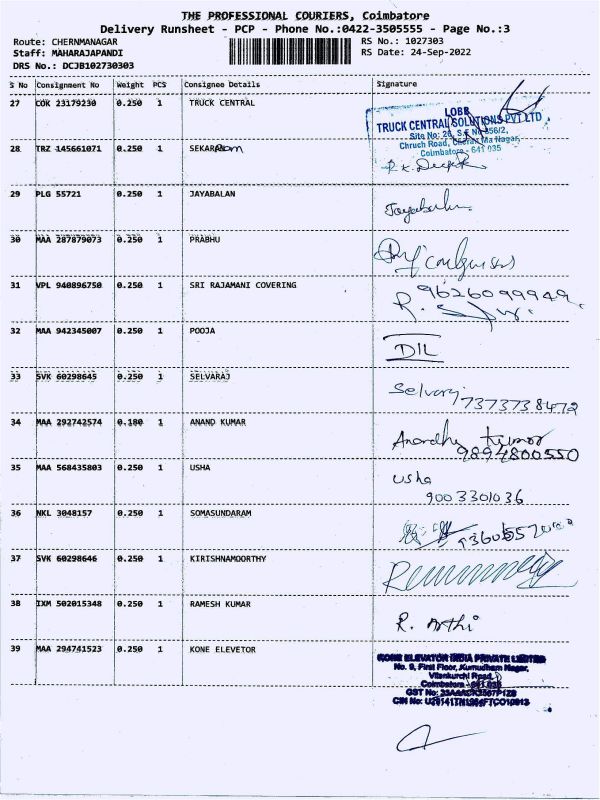 THE PROFESSIONAL COURIERS, Coimbatore
Delivery Runsheet - PCP - Phone No.:0422-3505555 - Page No.:3
Route: CHERNMANAGAR RS No.: 1027303
Staff: MAHARAJAPANDI RS Date: 24-Sep-2022
DRS No.: DCJB102730303
S No Consignment No Weight PCS Consignee Details Signature
27 COK 23179230 0.250 1 TRUCK CENTRAL
LOBB
TRUCK CENTRAL SOLUTIONS PVT LTD
Site No: 26, S.F. No 356/2,
Chruch Road, Cheran Ma Nagar,
Coimbatore - 641 035
28 TRZ 145661071 0.250 1 SEKAR
R.K. Deepk
29 PLG 55721 0.250 1 JAYABALAN
Jayabalan
30 MAA 287879073 0.250 1 PRABHU
31 VPL 940896750 0.250 1 SRI RAJAMANI COVERING
9626099949
32 MAA 942345007 0.250 1 POOJA
DIL
33 SVK 60298645 0.250 1 SELVARAJ
Selvaraj
7373738472
34 MAA 292742574 0.180 1 ANAND KUMAR
Anandha kumar
9894800550
35 MAA 568435803 0.250 1 USHA
usha
9003301036
36 NKL 3048157 0.250 1 SOMASUNDARAM
37 SVK 60298646 0.250 1 KIRISHNAMOORTHY
38 IXM 502015348 0.250 1 RAMESH KUMAR
R. Arthi
39 MAA 294741523 0.250 1 KONE ELEVETOR
KONE ELEVATOR INDIA PRIVATE LIMITED
No. 9, First Floor, Kumudham Nagar,
Vilankurchi Road,
Coimbatore - 641 035